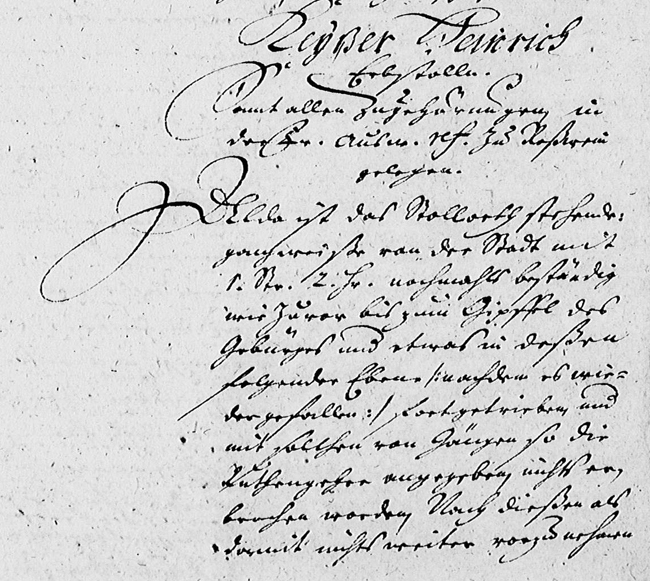 Keyßer Heinrich
Erbstolln.
Samt allen Zugehörungen, in
der gelegen.
Allda ist das Stollorth stehende:
gangweiße von der Stadt mit
1. Str. 2. Hr. nochmahls beständig
wie Zuvor bis zum Gipffel des
Gebürges und etwas in deßen
folgender Ebene /: nachdem es wie=
der gefallen :/ fortgetrieben, und
mit sollchen von Gängen so die
Ruthengeher angegeben, nichts er,
brochen worden, Nach dießen als
darmit nichts weiter vorzunehmen